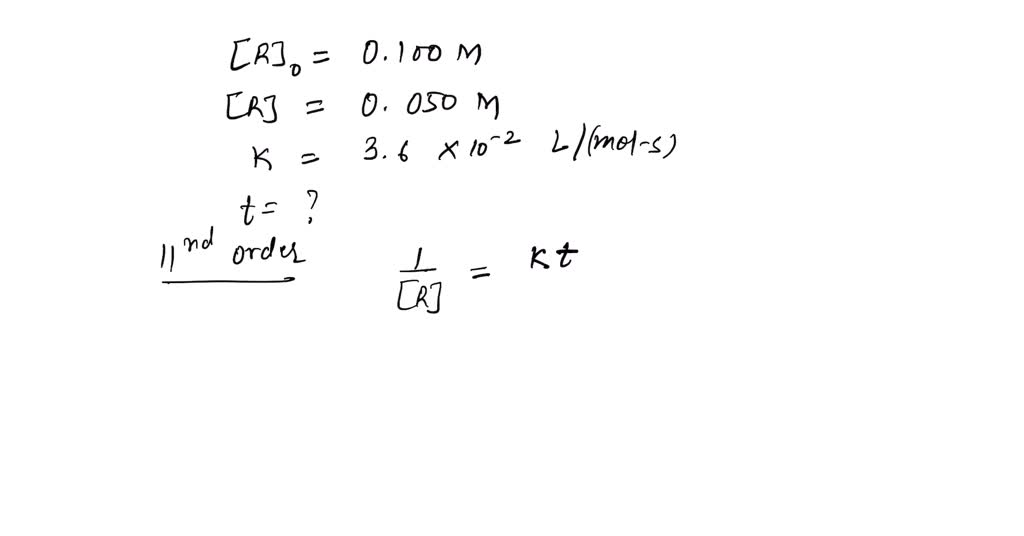 [R]₀ = 0.100 M
[R] = 0.050 M
K = 3.6 × 10⁻² L/(mol-s)
t = ?
IInd order
1/[R] = Kt